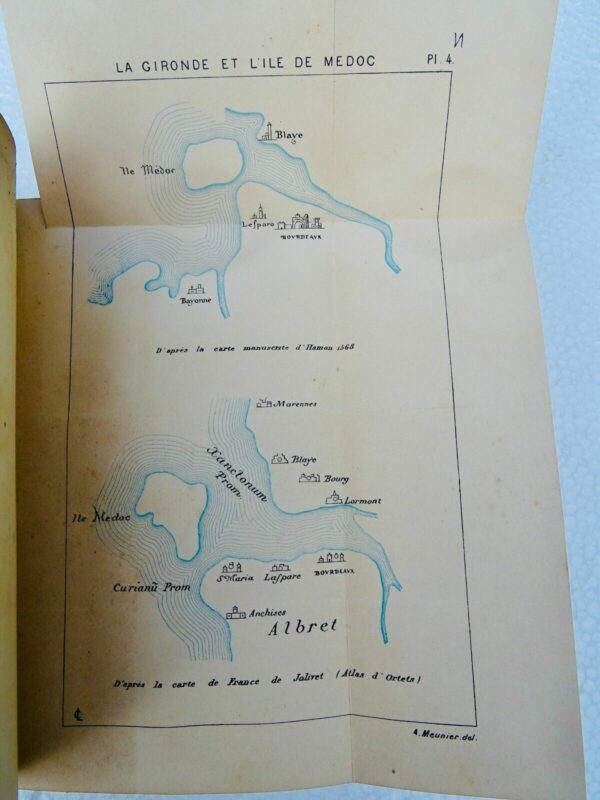 LA GIRONDE ET L'ILE DE MEDOC
Pl. 4.
Blaye
Ile Médoc
Lesparo
BOVRDEAVX
Bayonne
D'après la carte manuscrite d'Hamon 1568
Marennes
Xanctonum
Prom.
Blaye
Bourg
Lormont
Ile Medoc
Sta Maria
Laspare
BOVRDEAVX
Curianũ Prom
Anchises
Albret
D'après la carte de France de Jolivet (Atlas d'Ortels)
A. Meunier. del.